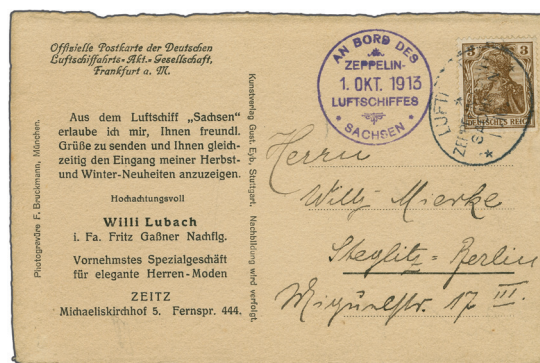 Offizielle Postkarte der Deutschen
Luftschiffahrts-Akt.-Gesellschaft,
Frankfurt a. M.
Aus dem Luftschiff „Sachsen“
erlaube ich mir, Ihnen freundl.
Grüße zu senden und Ihnen gleich-
zeitig den Eingang meiner Herbst-
und Winter-Neuheiten anzuzeigen.
Hochachtungsvoll
Willi Lubach
i. Fa. Fritz Gaßner Nachflg.
Vornehmstes Spezialgeschäft
für elegante Herren-Moden
ZEITZ
Michaeliskirchhof 5. Fernspr. 444.
Photogravüre F. Bruckmann, München.
Kunstverlag Gust. Eyb, Stuttgart. Nachbildung wird verfolgt.
AN BORD DES
ZEPPELIN-
1. OKT. 1913
LUFTSCHIFFES
* SACHSEN *
3 3
DEUTSCHES REICH
LUFT
ZEPP
SA
Herrn
Willy Mierke
Steglitz-Berlin
Miquelstr. 17 III.